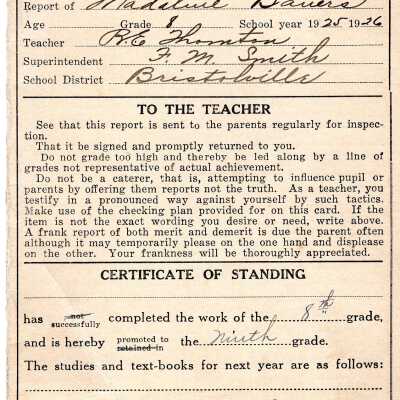 Report of Madaline Bauers
Age Grade 8 School year 1925-1926
Teacher R.E. Thornton
Superintendent F. M. Smith
School District Bristolville
TO THE TEACHER
See that this report is sent to the parents regularly for inspec-
tion.
That it be signed and promptly returned to you.
Do not grade too high and thereby be led along by a line of
grades not representative of actual achievement.
Do not be a caterer, that is, attempting to influence pupil or
parents by offering them reports not the truth. As a teacher, you
testify in a pronounced way against yourself by such tactics.
Make use of the checking plan provided for on this card. If the
item is not the exact wording you desire or need, write above.
A frank report of both merit and demerit is due the parent often
although it may temporarily please on the one hand and displease
on the other. Your frankness will be thoroughly appreciated.
CERTIFICATE OF STANDING
has not successfully completed the work of the 8th grade,
and is hereby promoted to retained in the Ninth grade.
The studies and text-books for next year are as follows: